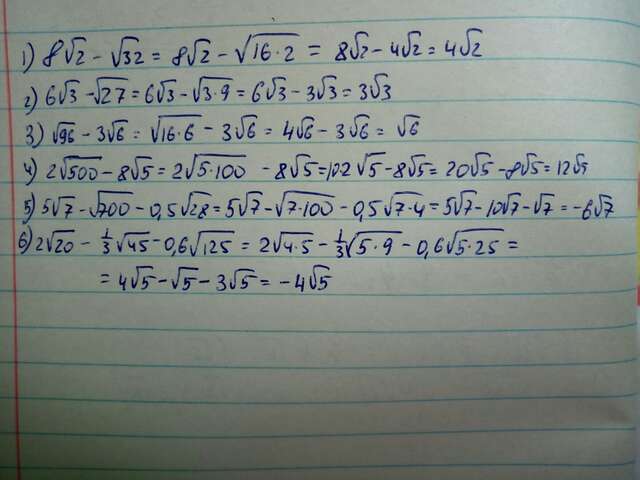 1) 8√2 - √32 = 8√2 - √16·2 = 8√2 - 4√2 = 4√2
2) 6√3 - √27 = 6√3 - √3·9 = 6√3 - 3√3 = 3√3
3) √96 - 3√6 = √16·6 - 3√6 = 4√6 - 3√6 = √6
4) 2√500 - 8√5 = 2√5·100 - 8√5 = 10·2√5 - 8√5 = 20√5 - 8√5 = 12√5
5) 5√7 - √700 - 0,5√28 = 5√7 - √7·100 - 0,5√7·4 = 5√7 - 10√7 - √7 = -6√7
6) 2√20 - 1/3√45 - 0,6√125 = 2√4·5 - 1/3√5·9 - 0,6√5·25 =
= 4√5 - √5 - 3√5 = -4√5